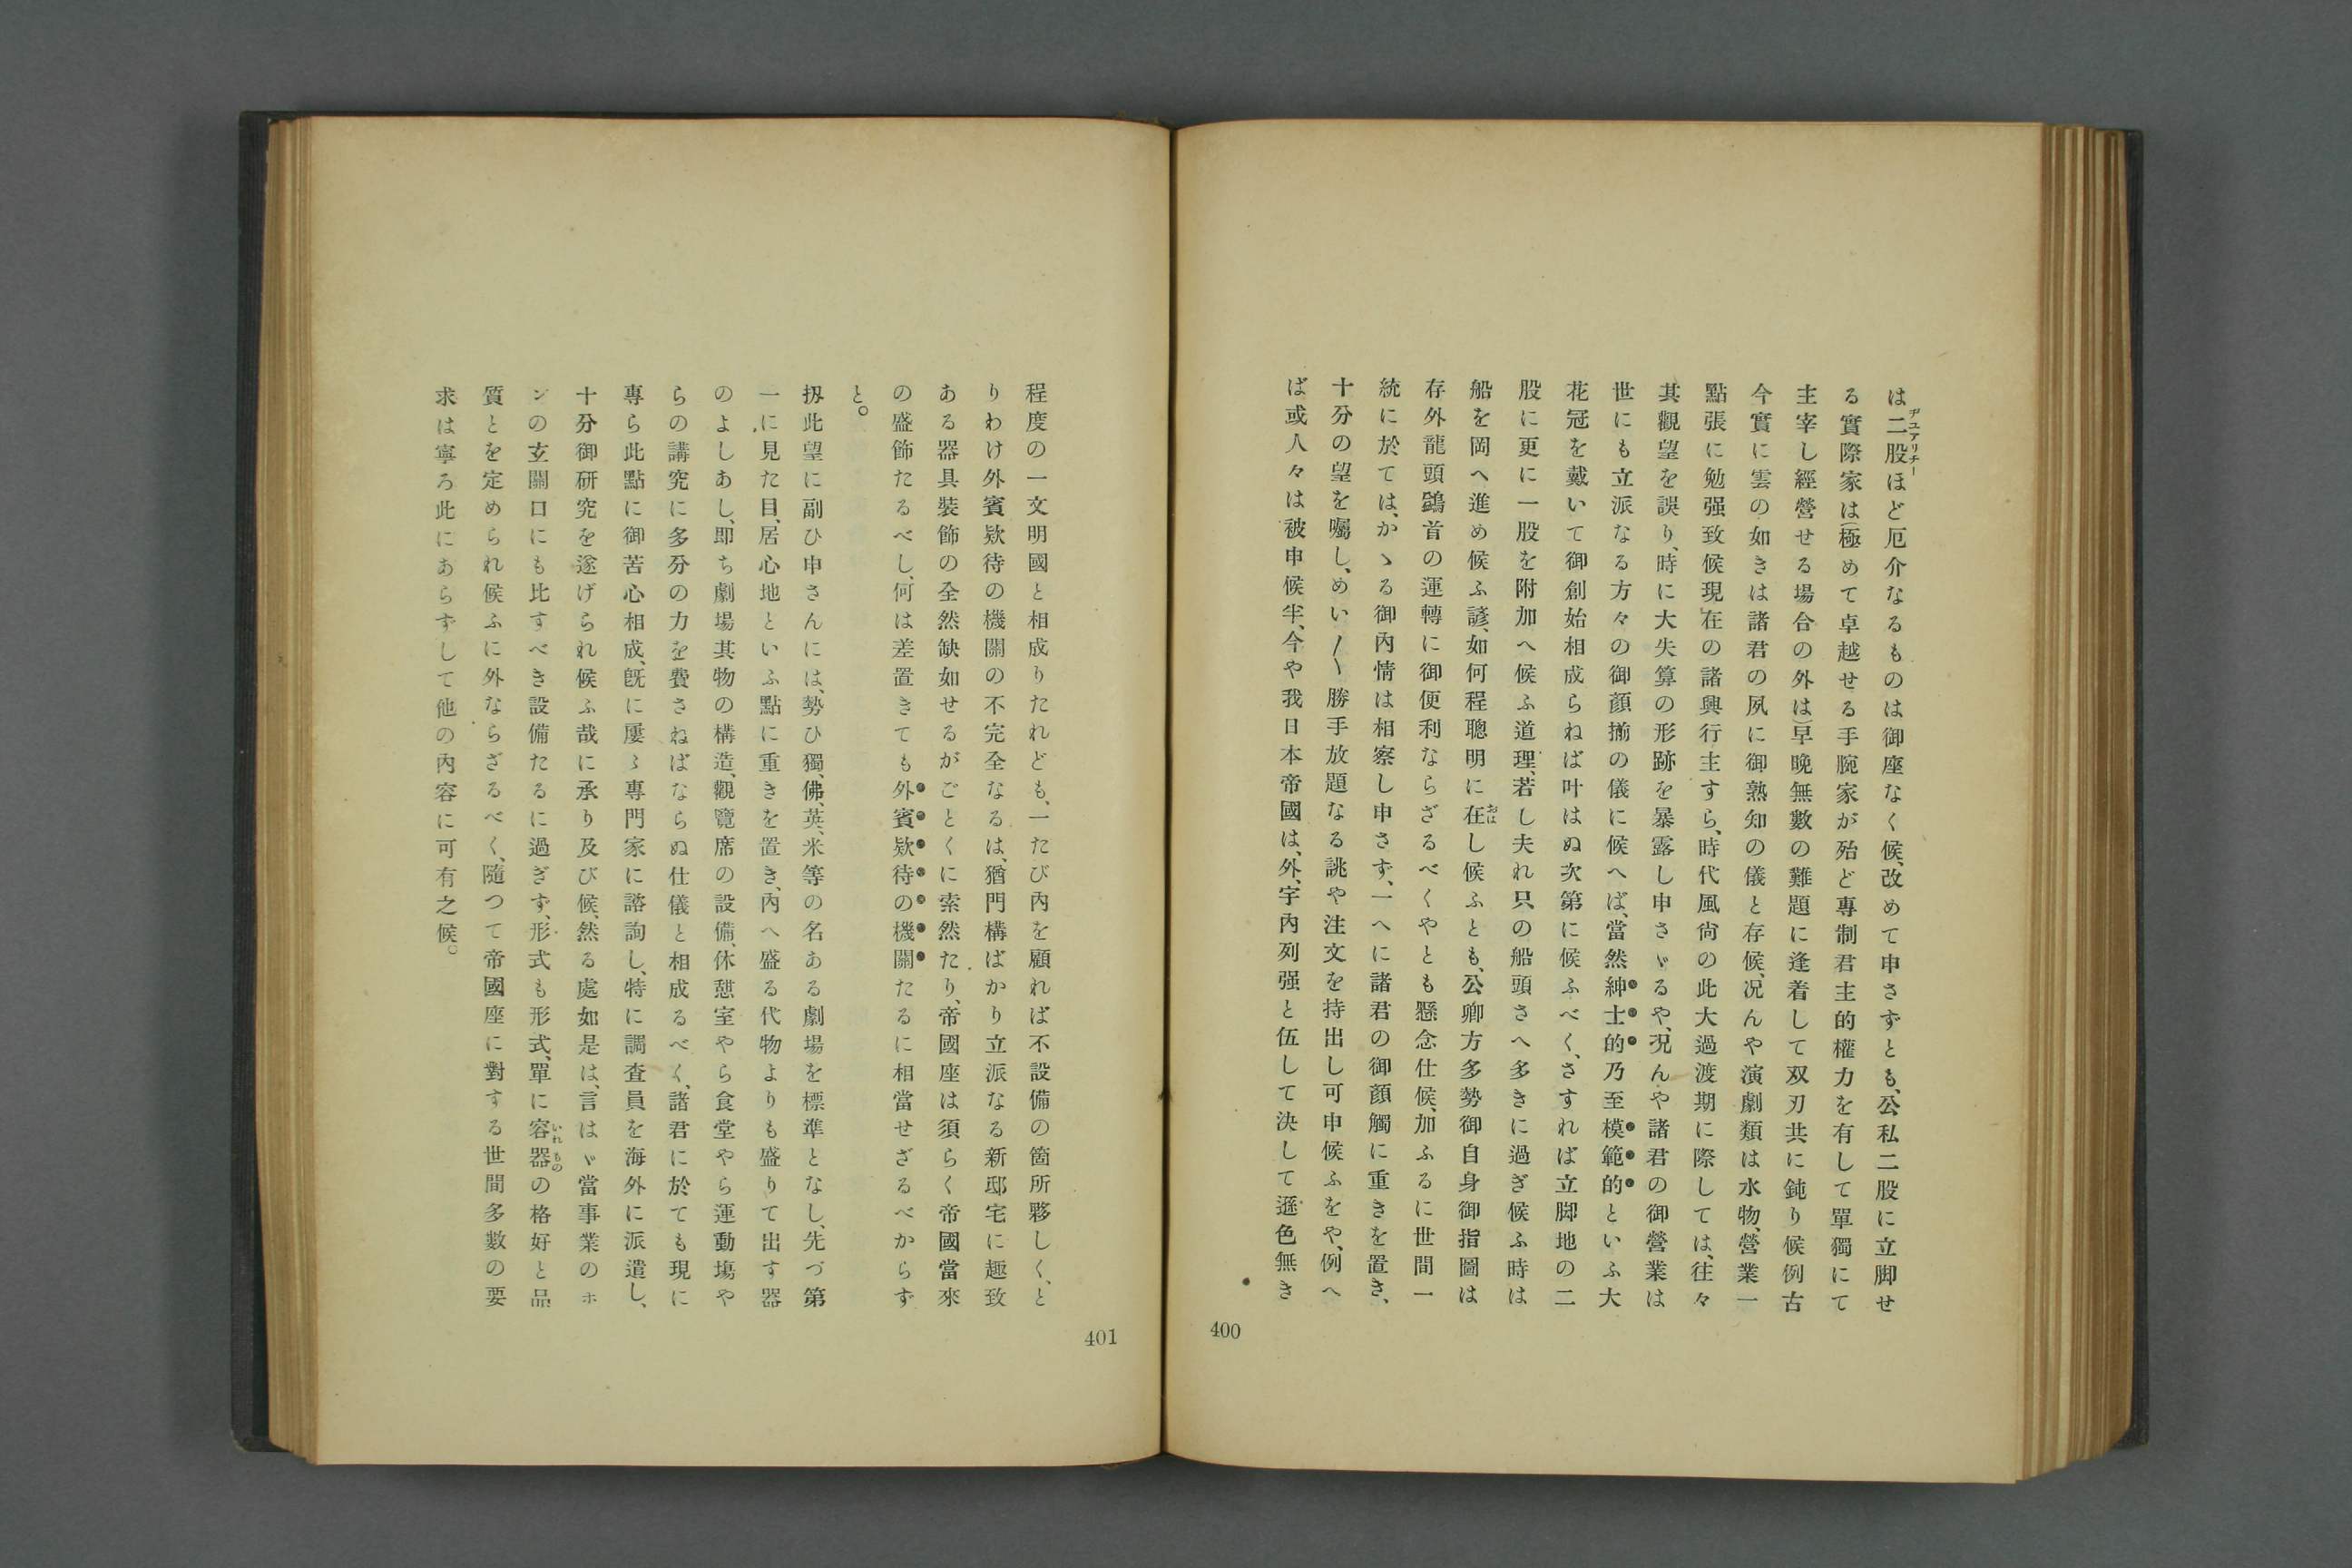 は二股ほど厄介なるものは御座なく候、改めて申さずとも、公私二股に立脚せ
ヂユアリチー
る實際家は(極めて卓越せる手腕家が殆ど專制君主的權力を有して單獨にて
主宰し經營せる場合の外は)早晩無數の難題に逢着して双刃共に鈍り候例古
今實に雲の如きは諸君の夙に御熟知の儀と存候、况んや演劇類は水物、營業一
點張に勉强致候現在の諸興行主すら、時代風尙の此大過渡期に際しては、往々
其觀望を誤り、時に大失算の形跡を暴露し申さゞるや、况んや諸君の御營業は
世にも立派なる方々の御顔揃の儀に候へば、當然紳士的乃至模範的といふ大
花冠を戴いて御創始相成らねば叶はぬ次第に候ふべく、さすれば立脚地の二
股に更に一股を附加へ候ふ道理、若し夫れ只の船頭さへ多きに過ぎ候ふ時は
船を岡へ進め候ふ諺、如何程聰明に在し候ふとも、公卿方多勢御自身御指圖は
おは
存外龍頭鷁首の運轉に御便利ならざるべくやとも懸念仕候、加ふるに世間一
統に於ては、かゝる御內情は相察し申さず、一へに諸君の御顔觸に重きを置き、
十分の望を囑し、めい〳〵勝手放題なる誂や注文を持出し可申候ふをや、例へ
ば或人々は被申候半、今や我日本帝國は、外、宇內列强と伍して決して遜色無き
400
程度の一文明國と相成りたれども、一たび內を顧れば不設備の箇所夥しく、と
りわけ外賓欵待の機關の不完全なるは、猶門構ばかり立派なる新邸宅に趣致
ある器具裝飾の全然缺如せるがごとくに索然たり、帝國座は須らく帝國當來
の盛飾たるべし、何は差置きても外賓欵待の機關たるに相當せざるべからず
と。
扨此望に副ひ申さんには、勢ひ獨、佛、英、米等の名ある劇場を標準となし、先づ第
一に見た目、居心地といふ點に重きを置き、內へ盛る代物よりも盛りて出す器
のよしあし、卽ち劇場其物の構造、觀覽席の設備、休憇室やら食堂やら運動塲や
らの講究に多分の力を費さねばならぬ仕儀と相成るべく、諸君に於ても現に
專ら此點に御苦心相成、旣に屢〻專門家に諮詢し、特に調査員を海外に派遣し、
十分御研究を遂げられ候ふ哉に承り及び候、然る處如是は、言はゞ當事業のホ
ンの玄關口にも比すべき設備たるに過ぎず、形式も形式、單に容器の格好と品
いれもの
質とを定められ候ふに外ならざるべく、隨つて帝國座に對する世間多數の要
求は寧ろ此にあらずして他の內容に可有之候。
401